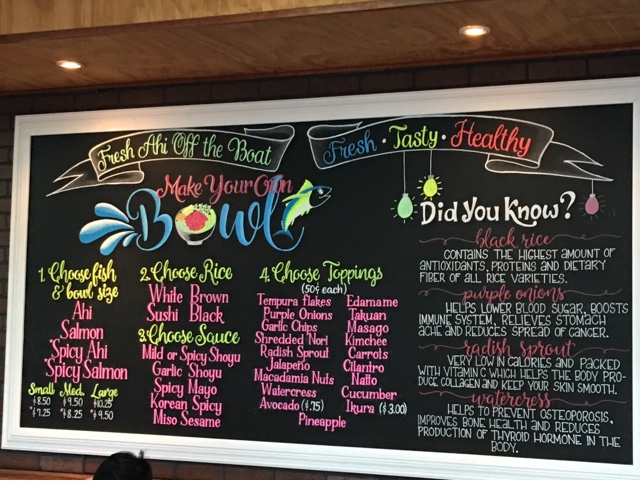 Fresh Ahi Off the Boat
Fresh · Tasty · Healthy
Make Your Own
Bowl
1. Choose fish
& bowl size
Ahi
Salmon
*Spicy Ahi
*Spicy Salmon
Small Med. Large
$8.50 $9.50 $10.25
*$7.25 *$8.25 *9.50
2. Choose Rice
White Brown
Sushi Black
3. Choose Sauce
Mild or Spicy Shoyu
Garlic Shoyu
Spicy Mayo
Korean Spicy
Miso Sesame
4. Choose Toppings
(50¢ each)
Tempura flakes
Purple Onions
Garlic Chips
Shredded Nori
Radish Sprout
Jalapeño
Macadamia Nuts
Watercress
Avocado ($.75)
Edamame
Takuan
Masago
Kimchee
Carrots
Cilantro
Natto
Cucumber
Ikura ($3.00)
Pineapple
Did You Know?
black rice
CONTAINS THE HIGHEST AMOUNT OF
ANTIOXIDANTS, PROTEINS AND DIETARY
FIBER OF ALL RICE VARIETIES.
purple onions
HELPS LOWER BLOOD SUGAR, BOOSTS
IMMUNE SYSTEM, RELIEVES STOMACH
ACHE AND REDUCES SPREAD OF CANCER.
radish sprout
VERY LOW IN CALORIES AND PACKED
WITH VITAMIN C WHICH HELPS THE BODY PRO-
DUCE COLLAGEN AND KEEP YOUR SKIN SMOOTH.
watercress
HELPS TO PREVENT OSTEOPOROSIS,
IMPROVES BONE HEALTH AND REDUCES
PRODUCTION OF THYROID HORMONE IN THE
BODY.